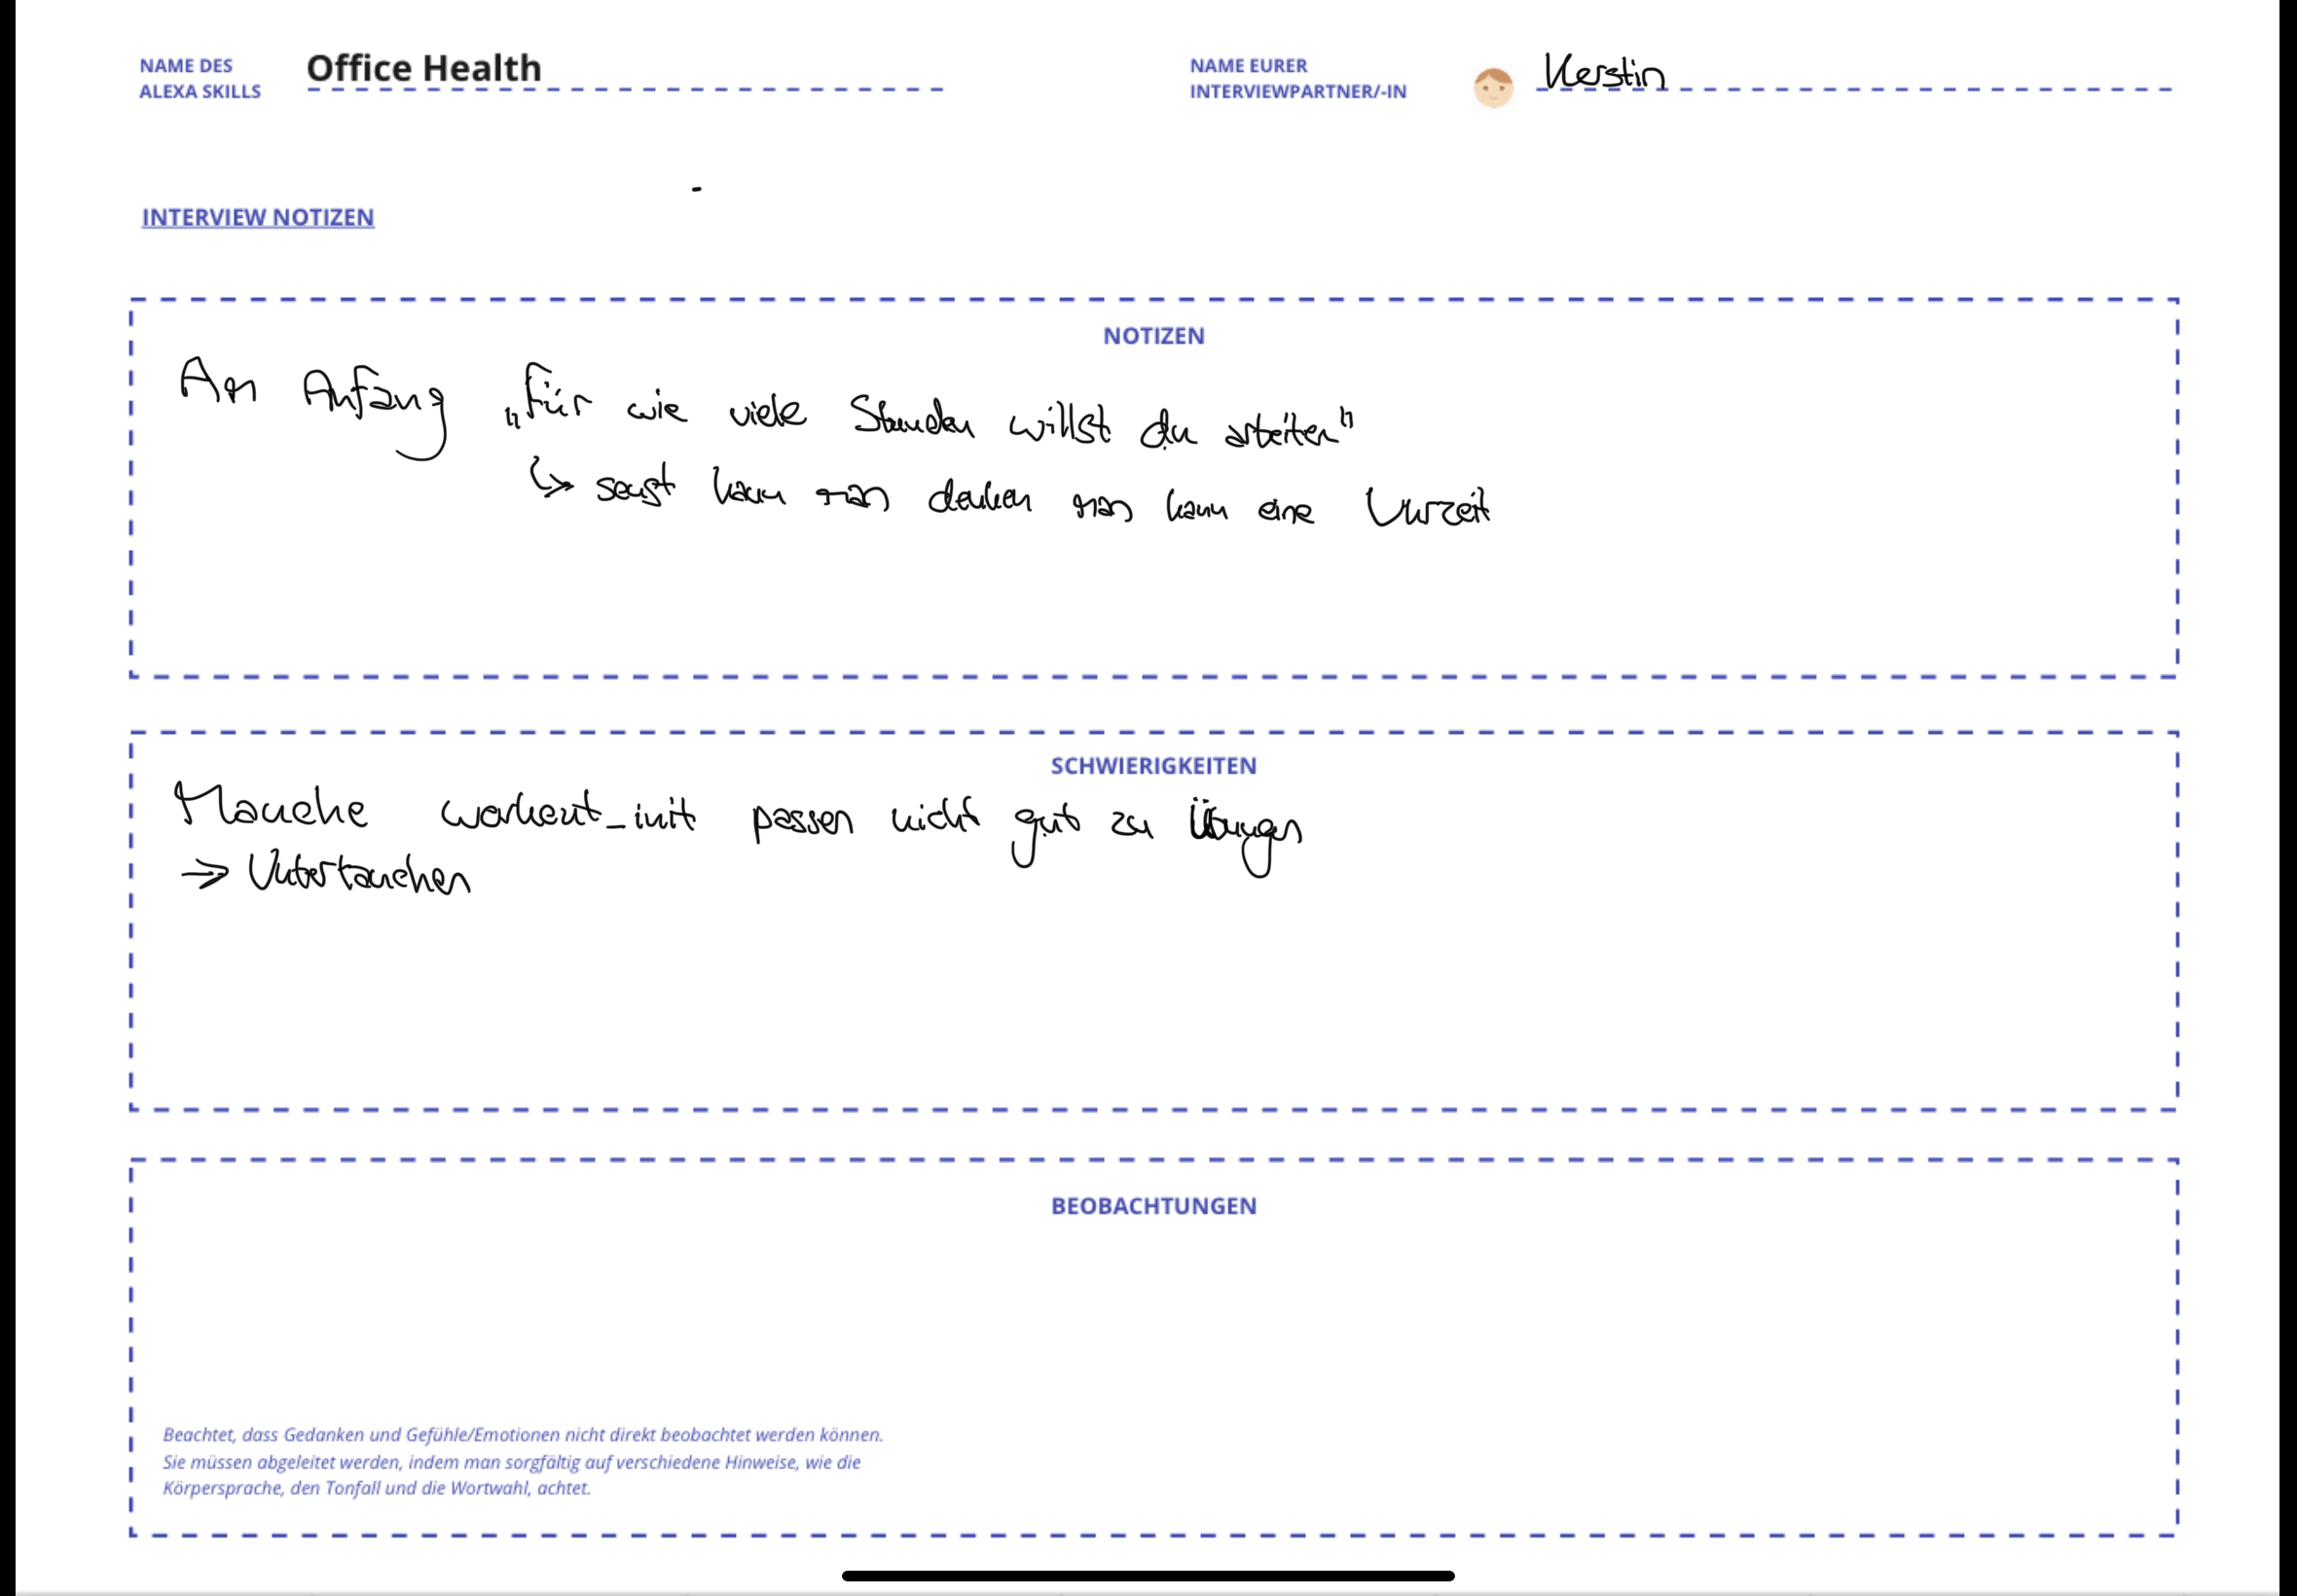 NAME DES
ALEXA SKILLS
Office Health
NAME EURER
INTERVIEWPARTNER/-IN
Kerstin
INTERVIEW NOTIZEN
NOTIZEN
Am Anfang „Für wie viele Stunden willst du arbeiten"
↳ sonst kann man denken man kann eine Uhrzeit
SCHWIERIGKEITEN
Manche workout_init passen nicht gut zu Übungen
→ Untertauchen
BEOBACHTUNGEN
Beachtet, dass Gedanken und Gefühle/Emotionen nicht direkt beobachtet werden können.
Sie müssen abgeleitet werden, indem man sorgfältig auf verschiedene Hinweise, wie die
Körpersprache, den Tonfall und die Wortwahl, achtet.